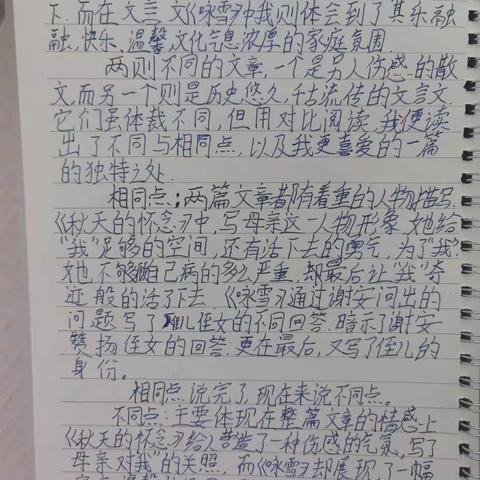 下.而在文言文《咏雪》中我则体会到了其乐融
融,快乐、温馨,文化气息浓厚的家庭氛围
两则不同的文章,一个是另人伤感的散
文,而另一个则是历史悠久,千古流传的文言文
它们虽体裁不同,但用对比阅读,我便读
出了不同与相同点,以及我更喜爱的一篇
的独特之处.
相同点;两篇文章都有着重的人物描写.
《秋天的怀念》中,写母亲这一人物形象.她给
“我”足够的空间,还有活下去的勇气,为了“我”.
她不顾自己病的多么严重,却最后让“我”奇
迹般的活了下去.《咏雪》通过谢安问出的
问题写了 儿侄女的不同回答.暗示了谢安
赞扬侄女的回答.更在最后,又写了侄儿的
身份。
相同点说完了,现在来说不同点。
不同点:主要体现在整篇文章的情感上
《秋天的怀念》给人营造了一种伤感的气氛,写了
母亲对“我”的关照,而《咏雪》却展现了一幅